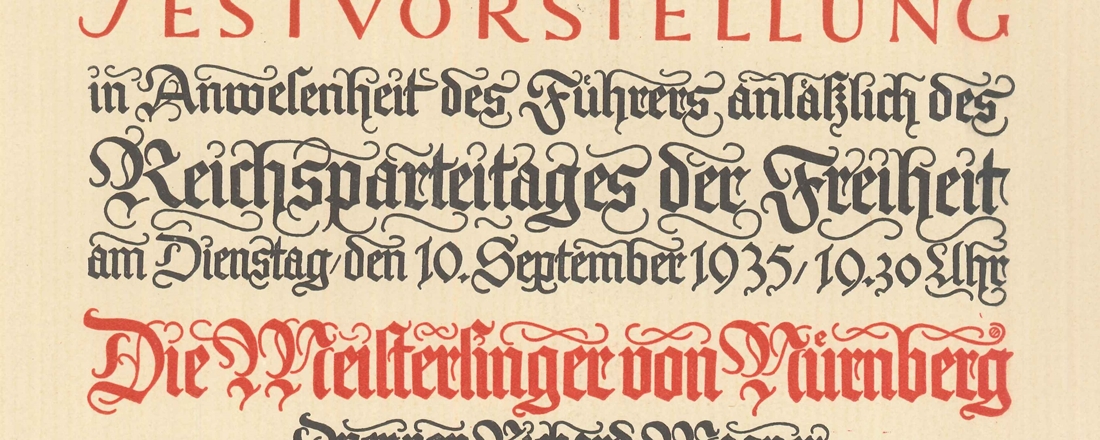 FESTVORSTELLUNG
in Anwesenheit des Führers anläßlich des
Reichsparteitages der Freiheit
am Dienstag, den 10. September 1935, 19.30 Uhr
Die Meistersinger von Nürnberg
Oper von Richard Wagner